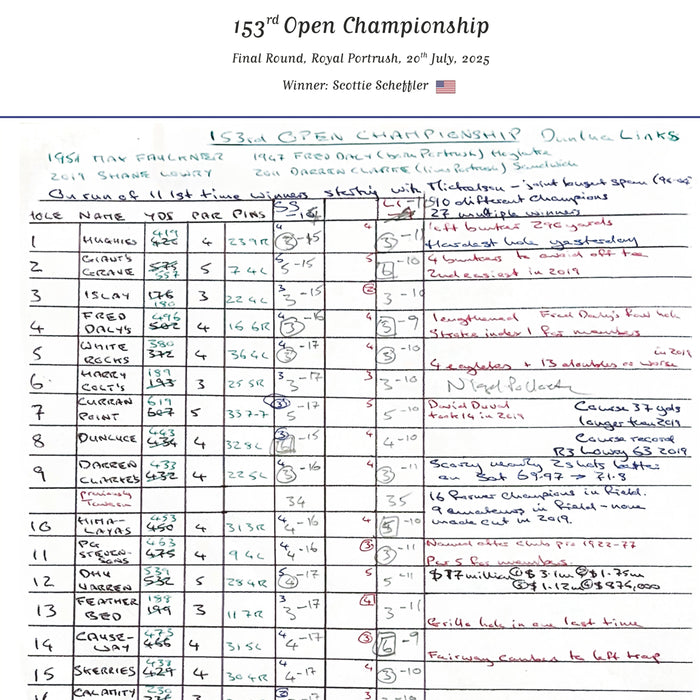 153rd Open Championship
Final Round, Royal Portrush, 20th July, 2025
Winner: Scottie Scheffler
153rd OPEN CHAMPIONSHIP Dunluce Links
1951 MAX FAULKNER 1947 FRED DALY (born Portrush) Hoylake
2019 SHANE LOWRY 2011 DARREN CLARKE (lives Portrush) Sandwich
On run of 11 1st time winners starting with Mickelson - joint longest span
10 different champions
27 multiple winners
HOLE NAME YDS PAR PINS SS
1 HUGHIES 419 426 4 239R 4 3 -15 4 3 -11 left bunker 296 yards
Hardest hole yesterday
2 GIANTS GRAVE 575 557 5 74L 5 5 -15 5 6 -10 4 bunkers to avoid off tee
2nd easiest in 2019
3 ISLAY 176 180 3 224L 3 3 -15 2 3 -10
4 FRED DALY'S 496 502 4 156R 4 3 -16 4 3 -9 lengthened Fred Daly's hole
Stroke index 1 for members
5 WHITE ROCKS 380 372 4 364L 4 -17 4 3 -10
4 eagles + 13 doubles or worse in 2019
6 HARRY COLT'S 189 193 3 255R 3 3 -17 3 3 -10
7 CURRAN POINT 619 607 5 337-7 5 -17 5 5 -10 David Duval
took 14 in 2019
Course 37 yds
longer than 2019
8 DUNLUCE 443 434 4 328L -15 4 4 -10 Course record
R3 Lowry 63 2019
9 DARREN CLARKE'S 433 432 4 225L 4 3 -16 4 3 -11 Scoring nearly 2 shots better
on Sat 69.97 → 71.8
previously Tavern 34 35 16 former champions in field.
9 amateurs in field - none
made cut in 2019.
10 HIMALAYAS 453 450 4 313R 4 4 -16 4 5 -10
11 PG STEVENSONS 463 475 4 94L 4 4 -16 3 3 -11 Named after club pro 1922-77
Par 5 for members.
12 DHU VARREN 539 532 5 284R 5 4 -17 5 5 -11 $17 million ① $3.1m ② $1.75m
③ $1.12m ④ $876,000
13 FEATHER BED 188 199 3 117R 3 3 -17 4 3 -11
Grillo hole in one last time
14 CAUSEWAY 473 466 4 315L 4 4 -17 3 6 -9
Fairway cambers to left trap
15 SKERRIES 433 429 4 304R 4 4 -17 4 3 -10
CALAMITY